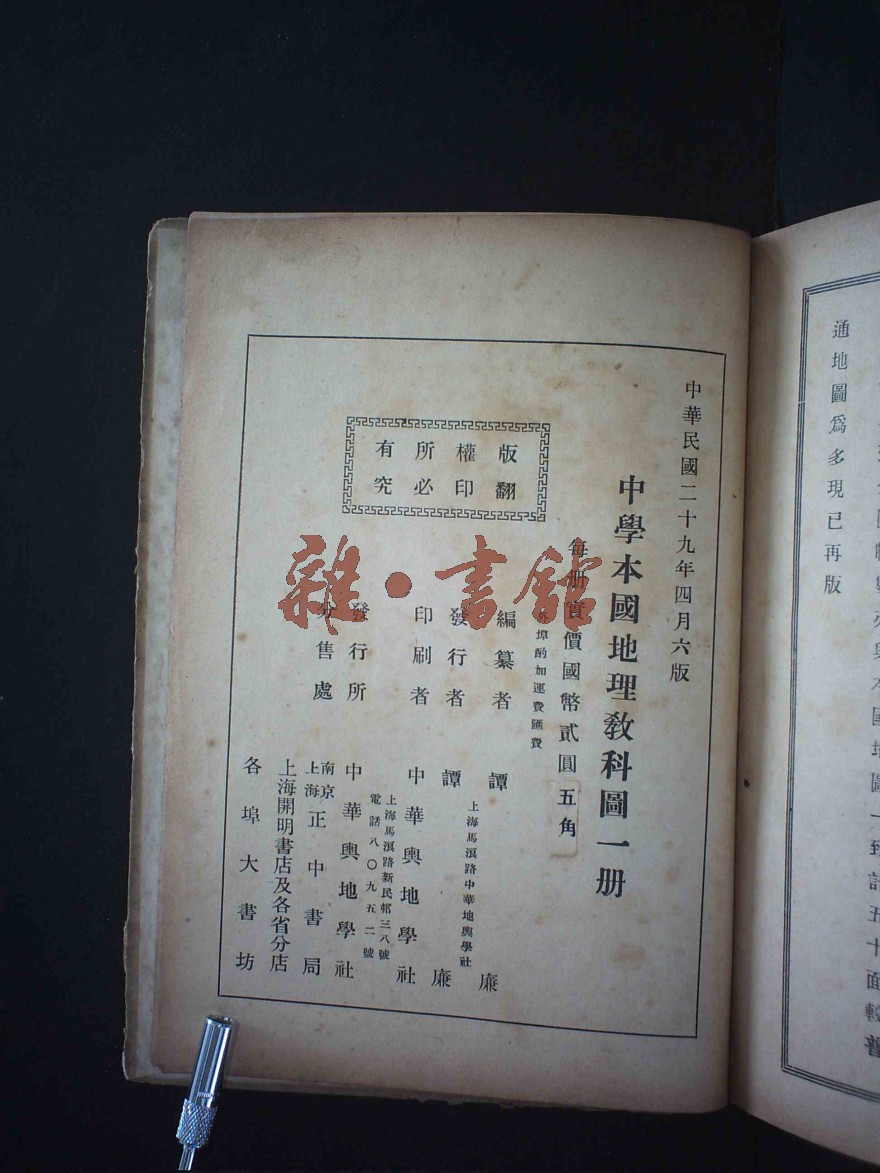 通地圖爲多現已再版
中華民國二十九年四月六版
中學本國地理教科圖一册
每册實價國幣貳圓五角
外埠酌加運費匯費
版權所有
翻印必究
編纂者 譚廉
上海馬浪路中華地輿學社
發行者 譚廉
印刷者 中華輿地學社
上海馬浪路新民邨三八號
電話八〇九五二號
發行所 中華輿地學社
分售處
南京上海正中書局
上海開明書店及各省分店
各埠大書坊
雜·書館